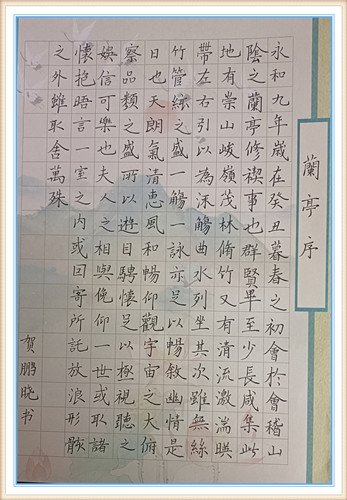 蘭亭序
永和九年歲在癸丑暮春之初會於會稽山
陰之蘭亭修禊事也群賢畢至少長咸集此
地有崇山峻嶺茂林脩竹又有清流激湍暎
帶左右引以為流觴曲水列坐其次雖無絲
竹管絃之盛一觴一詠亦足以暢敘幽情是
日也天朗氣清惠風和暢仰觀宇宙之大俯
察品類之盛所以遊目騁懷足以極視聽之
娛信可樂也夫人之相與俛仰一世或取諸
懷抱晤言一室之內或回寄所託放浪形骸
之外雖取舍萬殊
贺鹏晓书